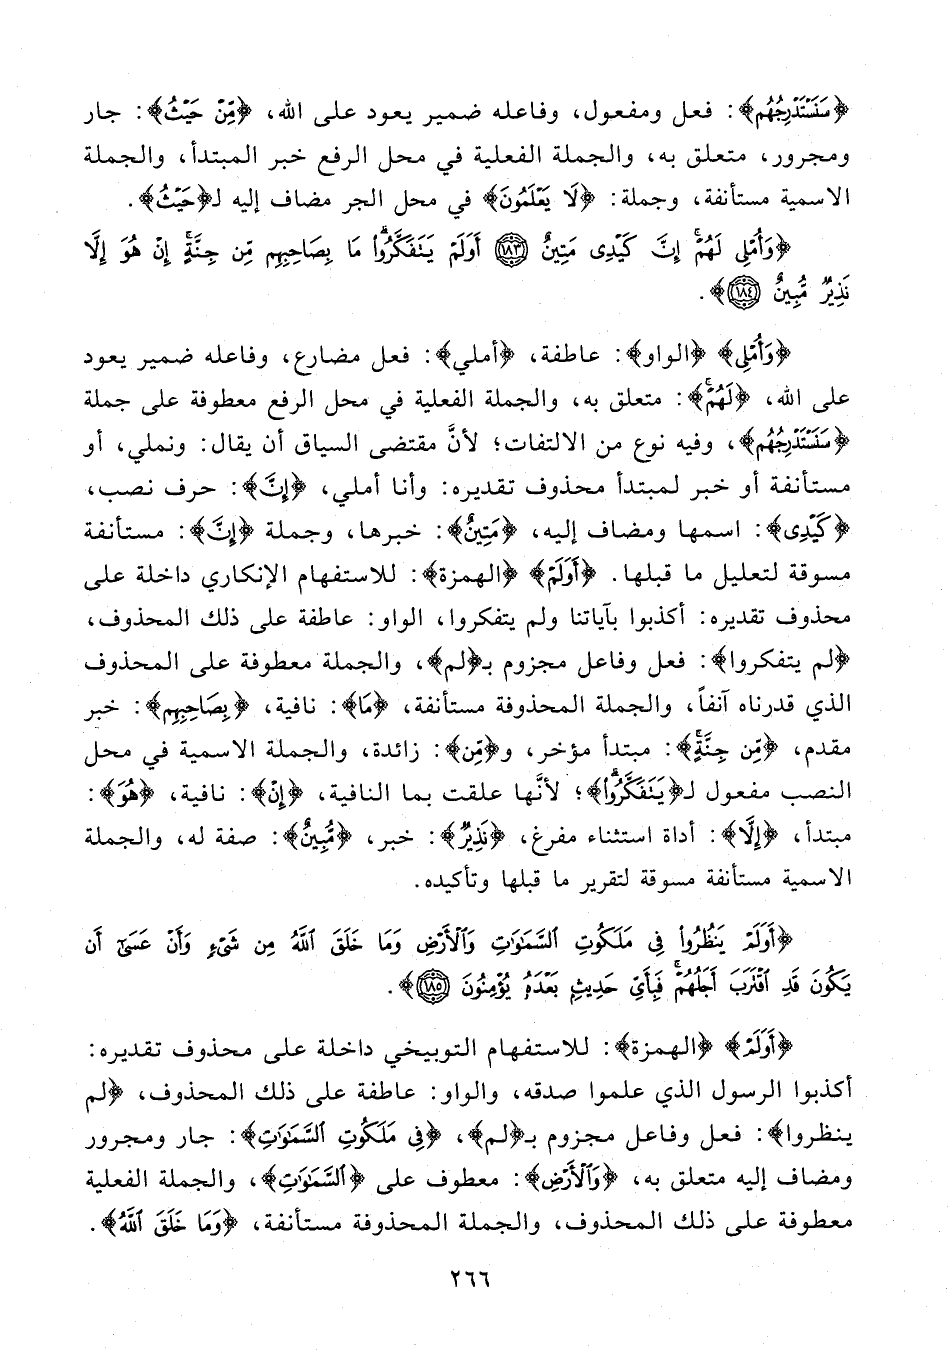 ﴿سَنَسْتَدْرِجُهُم﴾: فعل ومفعول، وفاعله ضمير يعود على الله، ﴿مِّنْ حَيْثُ﴾: جار
ومجرور، متعلق به، والجملة الفعلية في محل الرفع خبر المبتدأ، والجملة
الاسمية مستأنفة، وجملة: ﴿لَا يَعْلَمُونَ﴾ في محل الجر مضاف إليه لـ﴿حَيْثُ﴾.
﴿وَأُمْلِى لَهُمْ ۚ إِنَّ كَيْدِى مَتِينٌ ١٨٣ أَوَلَمْ يَتَفَكَّرُوا۟ ۗ مَا بِصَاحِبِهِم مِّن جِنَّةٍ ۚ إِنْ هُوَ إِلَّا
نَذِيرٌ مُّبِينٌ ١٨٤﴾.
﴿وَأُمْلِى﴾ ﴿الواو﴾: عاطفة، ﴿أملي﴾: فعل مضارع، وفاعله ضمير يعود
على الله، ﴿لَهُمْ ۚ﴾: متعلق به، والجملة الفعلية في محل الرفع معطوفة على جملة
﴿سَنَسْتَدْرِجُهُم﴾، وفيه نوع من الالتفات؛ لأنَّ مقتضى السياق أن يقال: ونملي، أو
مستأنفة أو خبر لمبتدأ محذوف تقديره: وأنا أملي، ﴿إِنَّ﴾: حرف نصب،
﴿كَيْدِى﴾: اسمها ومضاف إليه، ﴿مَتِينٌ﴾: خبرها، وجملة ﴿إِنَّ﴾: مستأنفة
مسوقة لتعليل ما قبلها. ﴿أَوَلَمْ﴾ ﴿الهمزة﴾: للاستفهام الإنكاري داخلة على
محذوف تقديره: أكذبوا بآياتنا ولم يتفكروا، الواو: عاطفة على ذلك المحذوف،
﴿لم يتفكروا﴾: فعل وفاعل مجزوم بـ﴿لم﴾، والجملة معطوفة على المحذوف
الذي قدرناه آنفاً، والجملة المحذوفة مستأنفة، ﴿مَا﴾: نافية، ﴿بِصَاحِبِهِم﴾: خبر
مقدم، ﴿مِّن جِنَّةٍ ۚ﴾: مبتدأ مؤخر، و﴿مِّن﴾: زائدة، والجملة الاسمية في محل
النصب مفعول لـ﴿يَتَفَكَّرُوا۟ ۗ﴾؛ لأنَّها علقت بما النافية، ﴿إِنْ﴾: نافية، ﴿هُوَ﴾:
مبتدأ، ﴿إِلَّا﴾: أداة استثناء مفرغ، ﴿نَذِيرٌ﴾: خبر، ﴿مُّبِينٌ﴾: صفة له، والجملة
الاسمية مستأنفة مسوقة لتقرير ما قبلها وتأكيده.
﴿أَوَلَمْ يَنظُرُوا۟ فِى مَلَكُوتِ ٱلسَّمَٰوَٰتِ وَٱلْأَرْضِ وَمَا خَلَقَ ٱللَّهُ مِن شَىْءٍ وَأَنْ عَسَىٰٓ أَن
يَكُونَ قَدِ ٱقْتَرَبَ أَجَلُهُمْ ۖ فَبِأَىِّ حَدِيثٍۭ بَعْدَهُۥ يُؤْمِنُونَ ١٨٥﴾.
﴿أَوَلَمْ﴾ ﴿الهمزة﴾: للاستفهام التوبيخي داخلة على محذوف تقديره:
أكذبوا الرسول الذي علموا صدقه، والواو: عاطفة على ذلك المحذوف، ﴿لم
ينظروا﴾: فعل وفاعل مجزوم بـ﴿لم﴾، ﴿فِى مَلَكُوتِ ٱلسَّمَٰوَٰتِ﴾: جار ومجرور
ومضاف إليه متعلق به، ﴿وَٱلْأَرْضِ﴾: معطوف على ﴿ٱلسَّمَٰوَٰتِ﴾، والجملة الفعلية
معطوفة على ذلك المحذوف، والجملة المحذوفة مستأنفة، ﴿وَمَا خَلَقَ ٱللَّهُ﴾.
٢٦٦